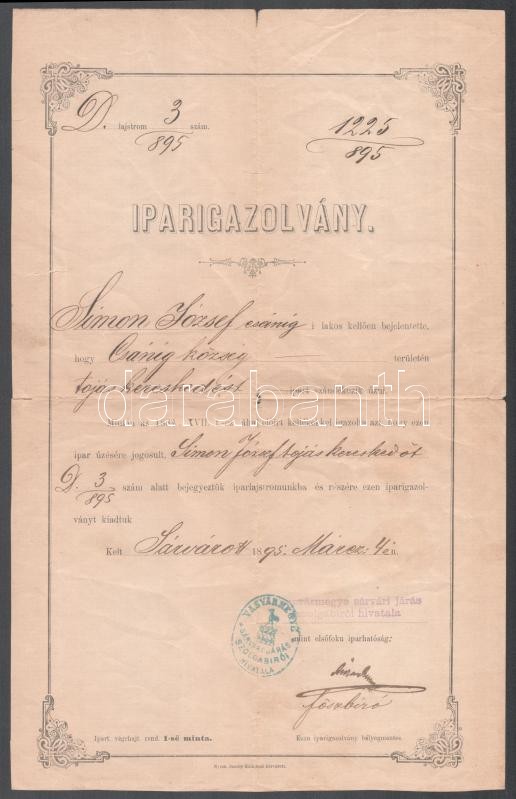 D. lajstrom 3/895 szám.
1225/895
IPARIGAZOLVÁNY.
Simon József csánig i lakos kellően bejelentette,
hogy Csánig község területén
tojáskereskedést ipart szándékozik űzni.
Minthogy az 1884. XVII. által előirt kellékeket igazolta azt, hogy ezen
ipar űzésére jogosult, Simon József tojáskereskedőt
D. 3/895 szám alatt bejegyeztük iparlajstromunkba és részére ezen iparigazol-
ványt kiadtuk
Kelt Sárvárott 1895. Márcz. 4 én.
Vasvármegye sárvári járás
szolgabirói hivatala
mint elsőfoku iparhatóság:
VASVÁRMEGYE
SÁRVÁRI JÁRÁS
SZOLGABIRÓI
HIVATALA
főszbiró
Ipart. végrehajt. rend. I-ső minta.
Ezen iparigazolvány bélyegmentes.
darabanth